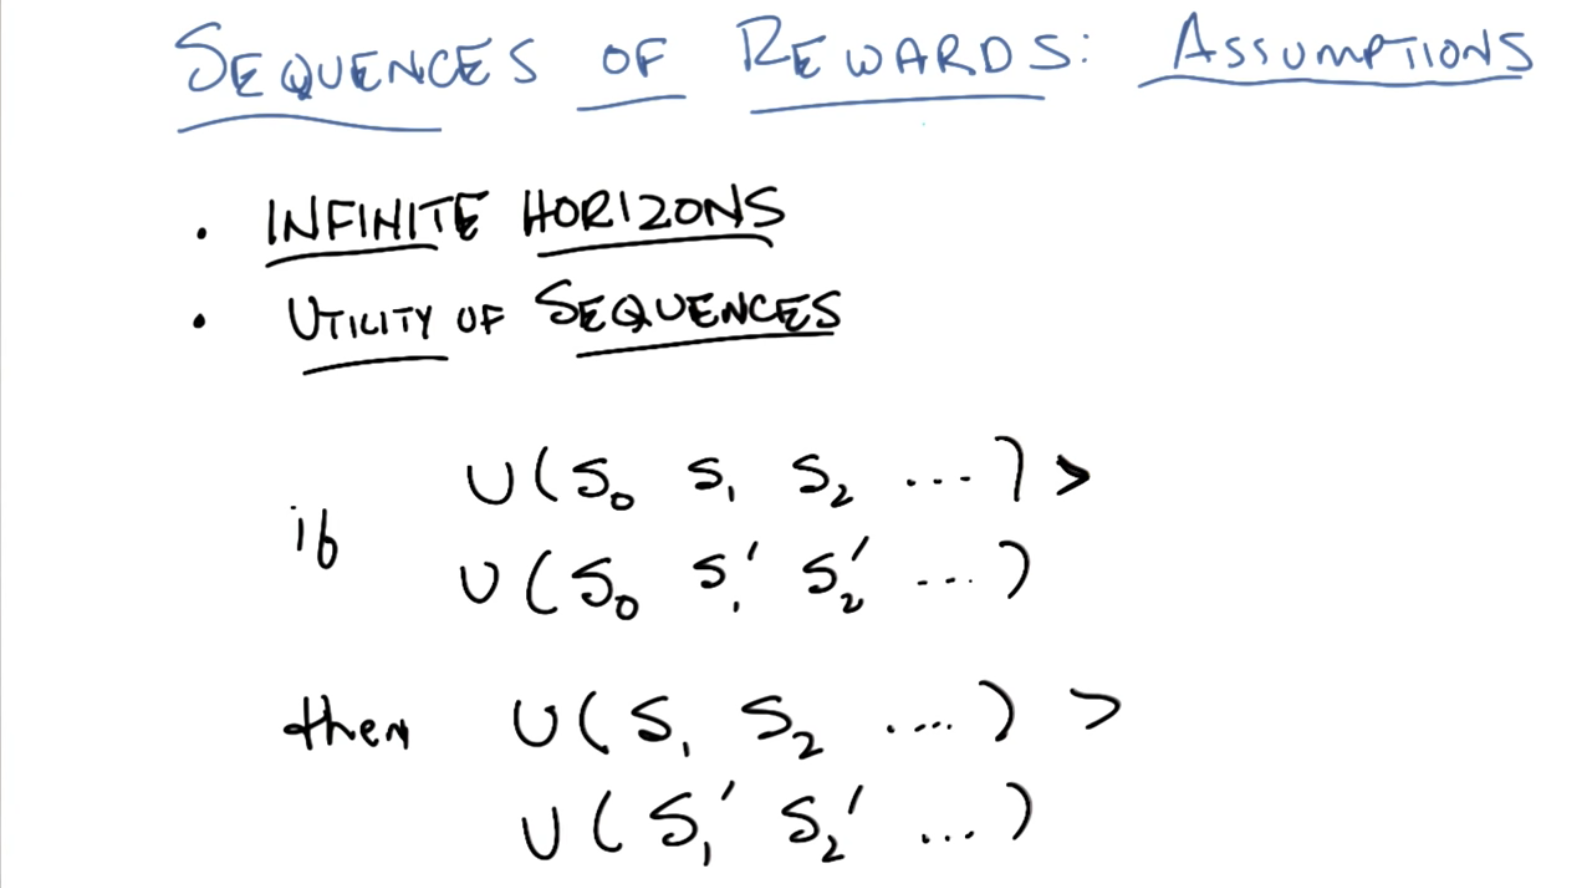 SEQUENCES OF REWARDS: ASSUMPTIONS
• INFINITE HORIZONS
• UTILITY OF SEQUENCES
U(S₀ S₁ S₂ ...) >
if
U(S₀ S₁' S₂' ...)
then U(S₁ S₂ ....) >
U(S₁' S₂' ...)